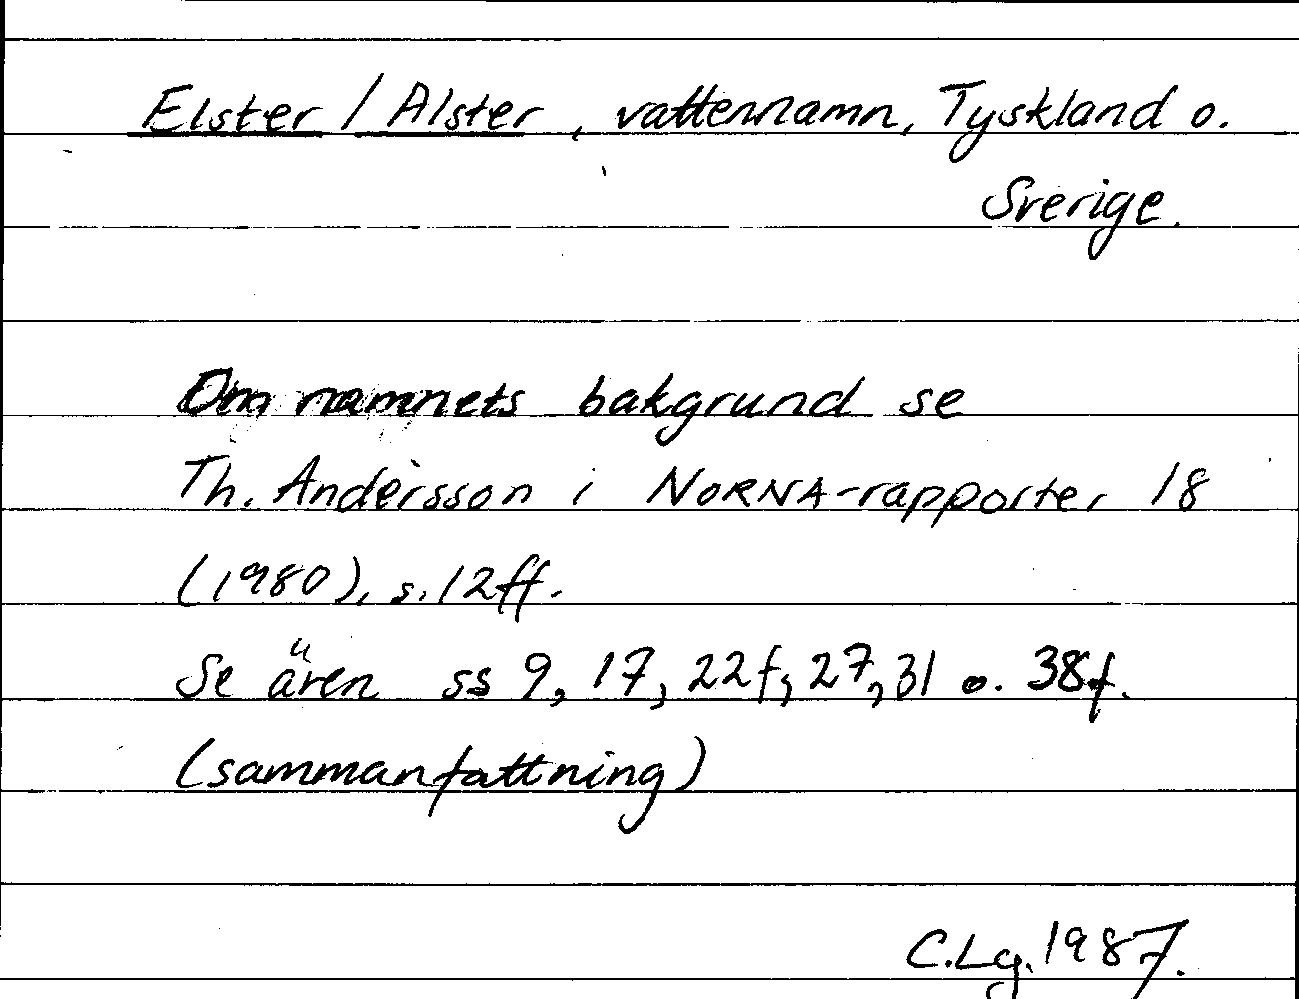 Elster / Alster, vattennamn, Tyskland o.
Sverige.
Om namnets bakgrund se
Th. Andersson i NORNA-rapporter 18
(1980), s. 12ff.
Se även ss 9, 17, 22f, 27, 31 o. 38f.
(sammanfattning)
C.Lg. 1987.